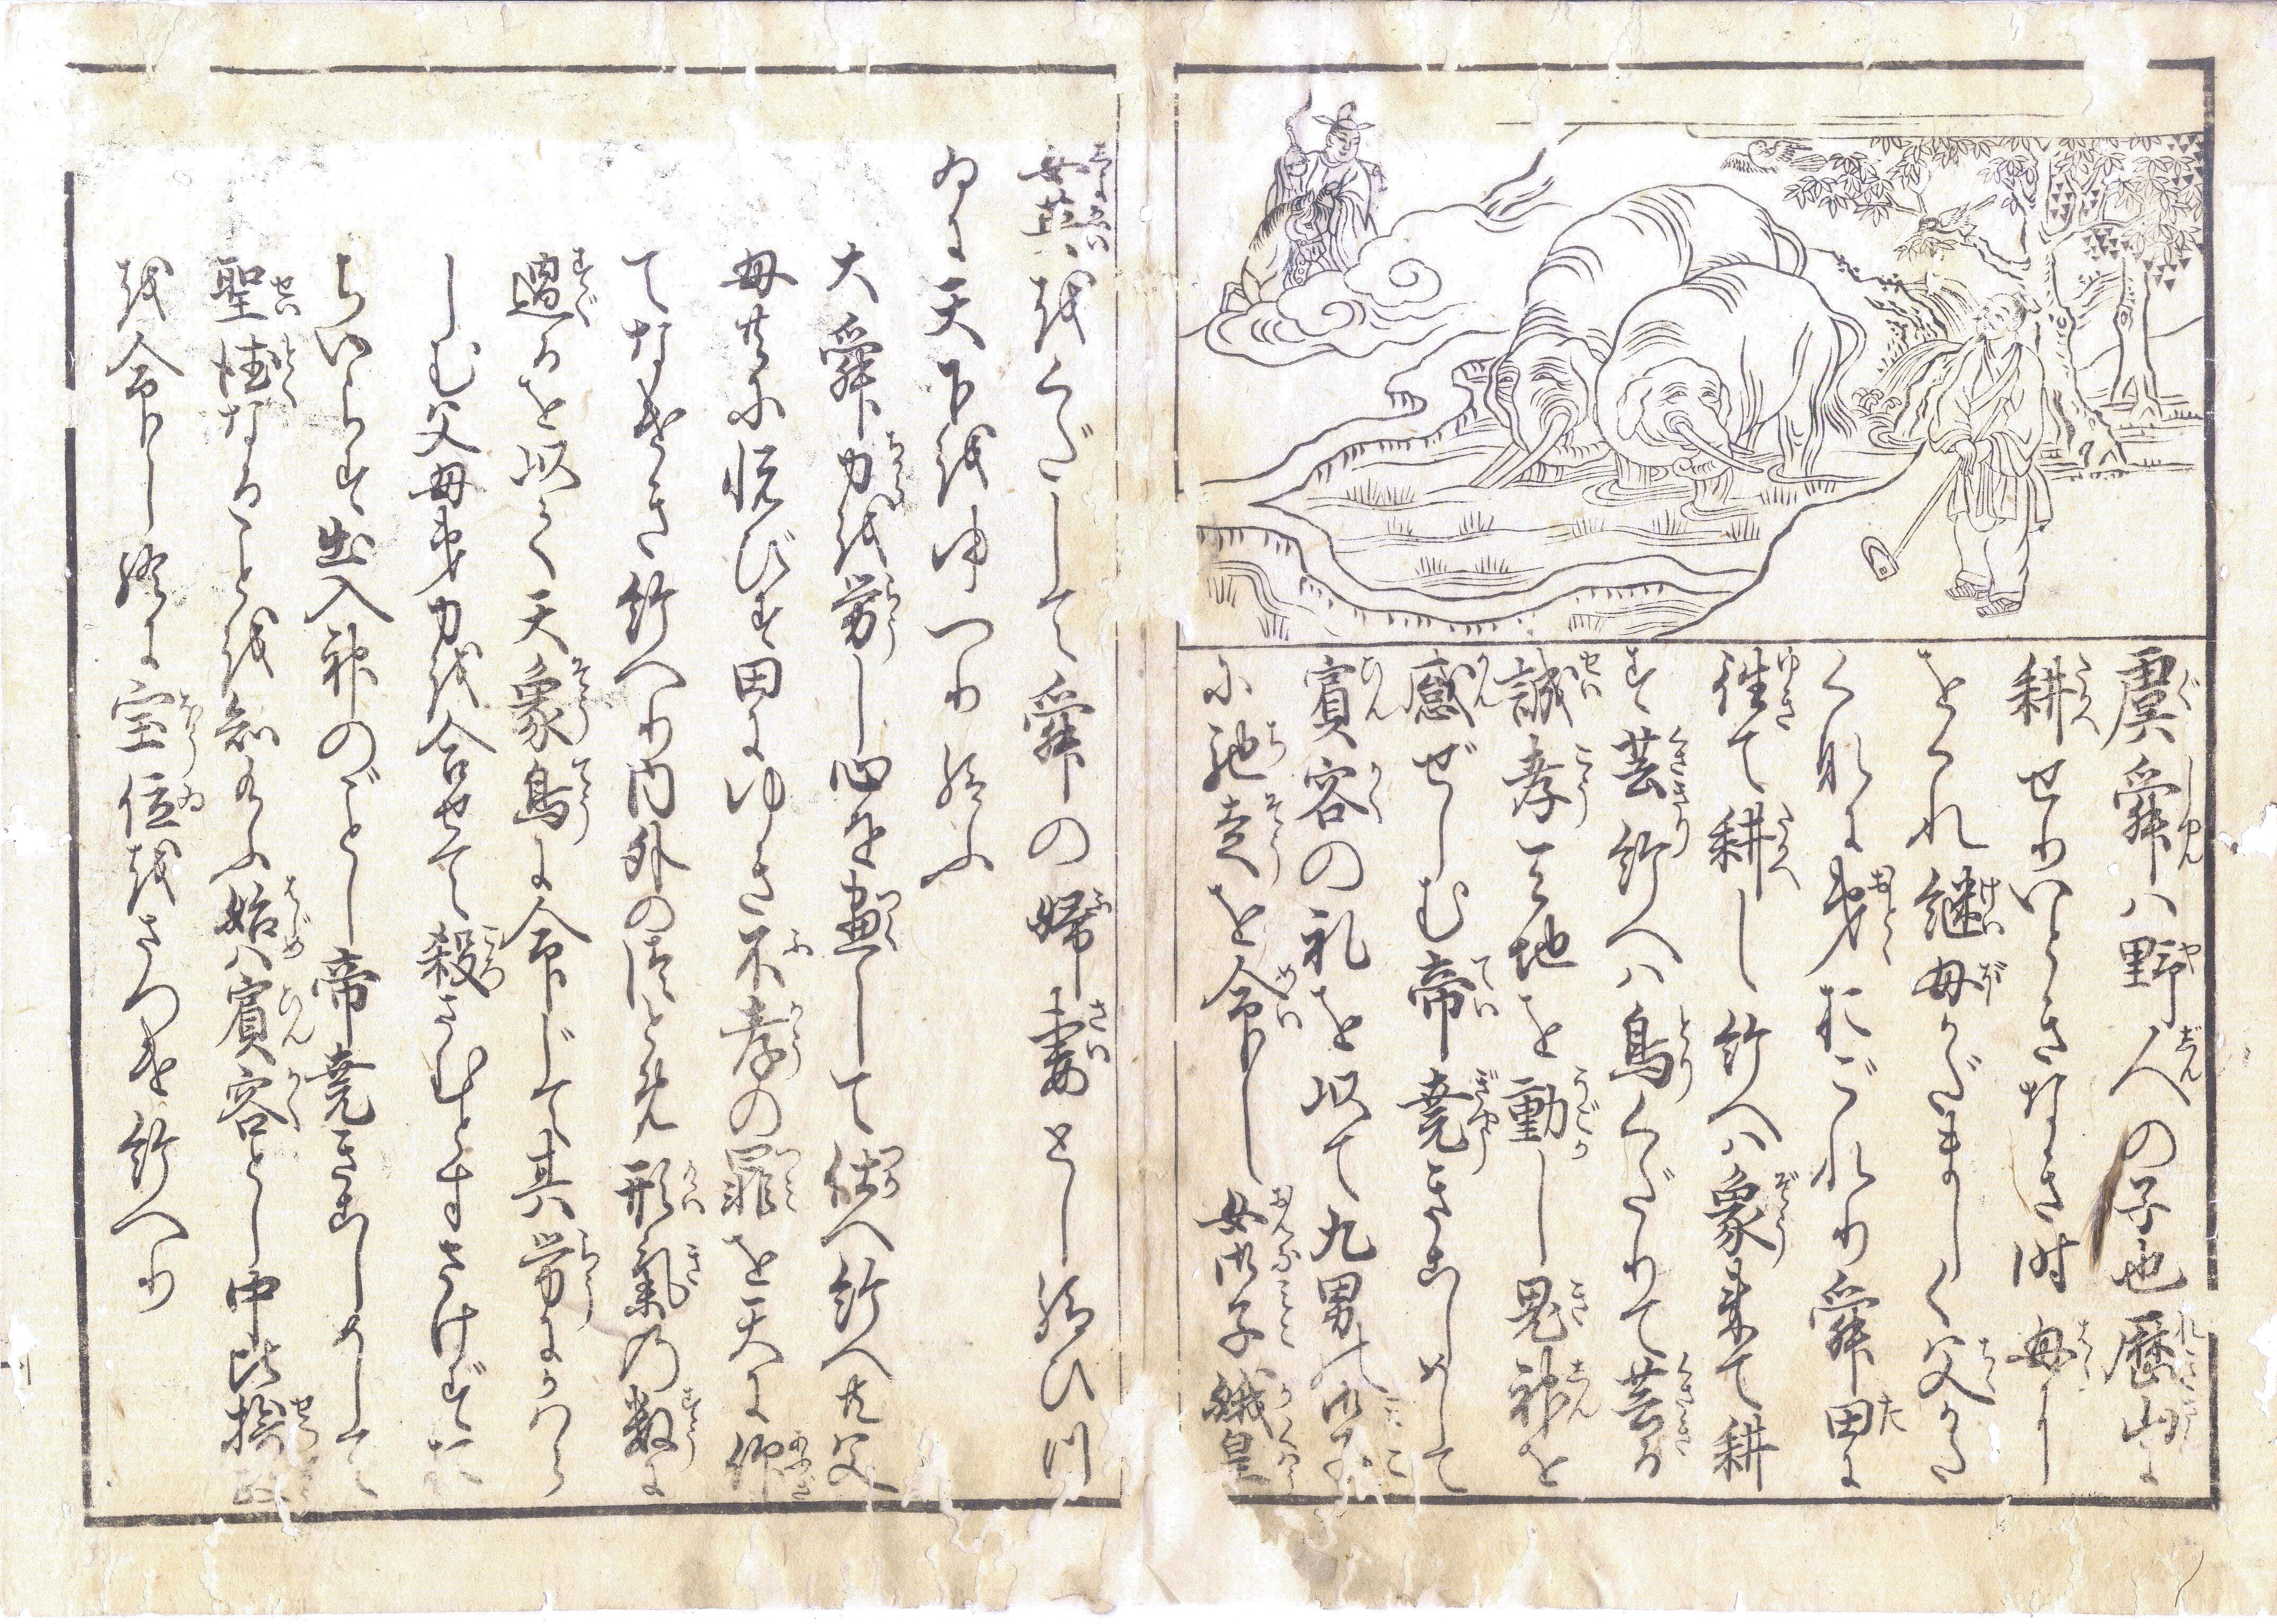 虞舜ハ野人の子也歴山に
耕せりいとけなき時母に
をくれ継母かだましく父かた
くなに弟おごれり舜田に
往て耕し給へハ象来て耕
す芸給へハ鳥くだりて芸る
誠孝天地を動し鬼神を
感ぜしむ帝堯きこしめして
賓容の礼を以て九男の御子
に馳走を命し女御子娥皇
女英をくだして舜の婦妻とし給ひ
天下をゆつり給ふ
大舜力を労し心を尽して仕へ給へ共父
母共に悦びす田にゆき不孝の罪を天に仰
てなけき給へり内外の
過るを以て天象鳥に命じて其労にかハら
しむ父母弟力を合せて殺さむとすれども
出入神のごとし帝堯きこしめして
聖徳なることを知給ふ始ハ賓容とし中比摂政
を命し終に宝位をさつけ給へり